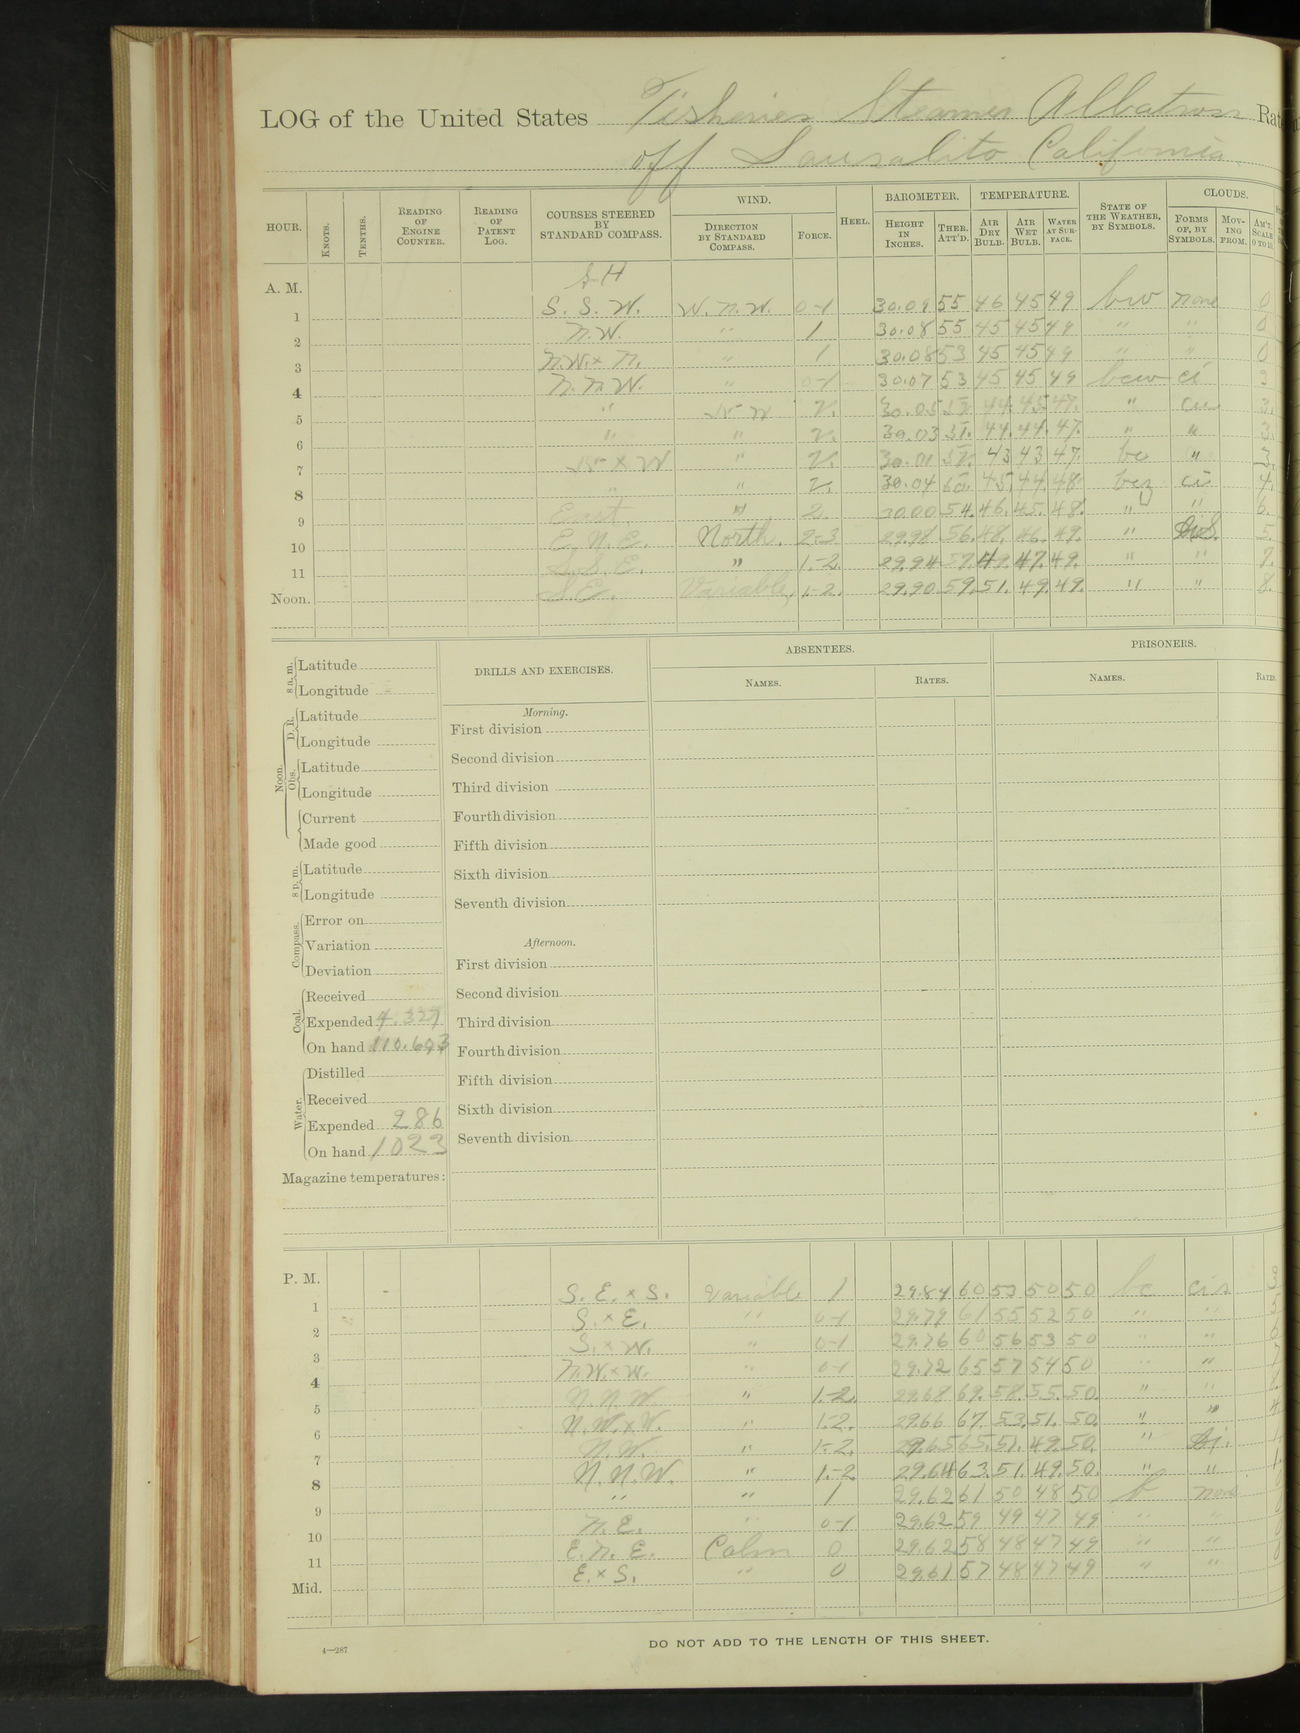 LOG of the United States Fisheries Steamer Albatross Rat
off Sausalito California
HOUR. KNOTS. TENTHS. READING OF ENGINE COUNTER. READING OF PATENT LOG. COURSES STEERED BY STANDARD COMPASS. WIND. DIRECTION BY STANDARD COMPASS. FORCE. HEEL. BAROMETER. HEIGHT IN INCHES. THER. ATT'D. TEMPERATURE. AIR DRY BULB. AIR WET BULB. WATER AT SURFACE. STATE OF THE WEATHER, BY SYMBOLS. CLOUDS. FORMS OF, BY SYMBOLS. MOVING FROM. AM'T. SCALE 0 TO 10.
A. M. S H
1 S. S. W. W. N. W. 0-1 30.09 55 46 45 49 bw none 0
2 N.W. " 1 30.08 55 45 45 49 " " 0
3 N.W. x N. " 1 30.08 53 45 45 49 " " 0
4 N. N. W. " 0-1 30.07 53 45 45 49 bcw ci 3
5 " 2. 30.05 44. 45 47. " cu 3.
6 " " 2. 30.03 51. 44. 44. 47. " " 3.
7 " 2. 30.01 43 43 47. bc " 3
8 " " 2. 30.04 45. 44. 48. bcz ci 4.
9 East. " 2. 30.00 54. 46. 45. 48. " " 6.
10 E. N. E. North. 2-3 29.98 56. 48. 46. 49. " 5.
11 S.S.E. " 1.-2. 29.94 57. 49. 47. 49. " " 7.
Noon. S.E. Variable, 1-2. 29.90 59. 51. 49. 49. " " 8.
8 a. m. Latitude
Longitude
Noon. D. R. Latitude
Longitude
Obs. Latitude
Longitude
Current
Made good
8 p. m. Latitude
Longitude
Compass. Error on
Variation
Deviation
Coal. Received
Expended 4.327
On hand 110.693
Water. Distilled
Received
Expended 286
On hand 1023
Magazine temperatures:
DRILLS AND EXERCISES.
Morning.
First division
Second division
Third division
Fourth division
Fifth division
Sixth division
Seventh division
Afternoon.
First division
Second division
Third division
Fourth division
Fifth division
Sixth division
Seventh division
ABSENTEES.
NAMES. RATES.
PRISONERS.
NAMES. RATES.
P. M.
1 S. E. x S. Variable 1 29.84 60 53 50 50 bc ci s 3
2 S. x E. " 0-1 29.79 61 55 52 50 " " 5
3 S. x W. " 0-1 29.76 60 56 53 50 " " 6
4 N.W. x W. " 0-1 29.72 65 57 54 50 " " 7
5 N. N. W. " 1.-2. 29.68 69. 58. 55. 50. " " 8.
6 N. W. x W. " 1-2. 29.66 67. 53. 51. 50. " " 4.
7 N. W. " 1-2. 29.65 65. 51. 49. 50. "
8 N. N. W. " 1.-2 29.64 63. 51. 49. 50. " " 1.
9 " " 1 29.62 61 50 48 50 b none
10 N. E. " 0-1 29.62 59 49 47 49 " " 0
11 E. N. E. Calm 0 29.62 58 48 47 49 " " 0
Mid. E. x S. " 0 29.61 57 48 47 49 " " 0
4—287
DO NOT ADD TO THE LENGTH OF THIS SHEET.